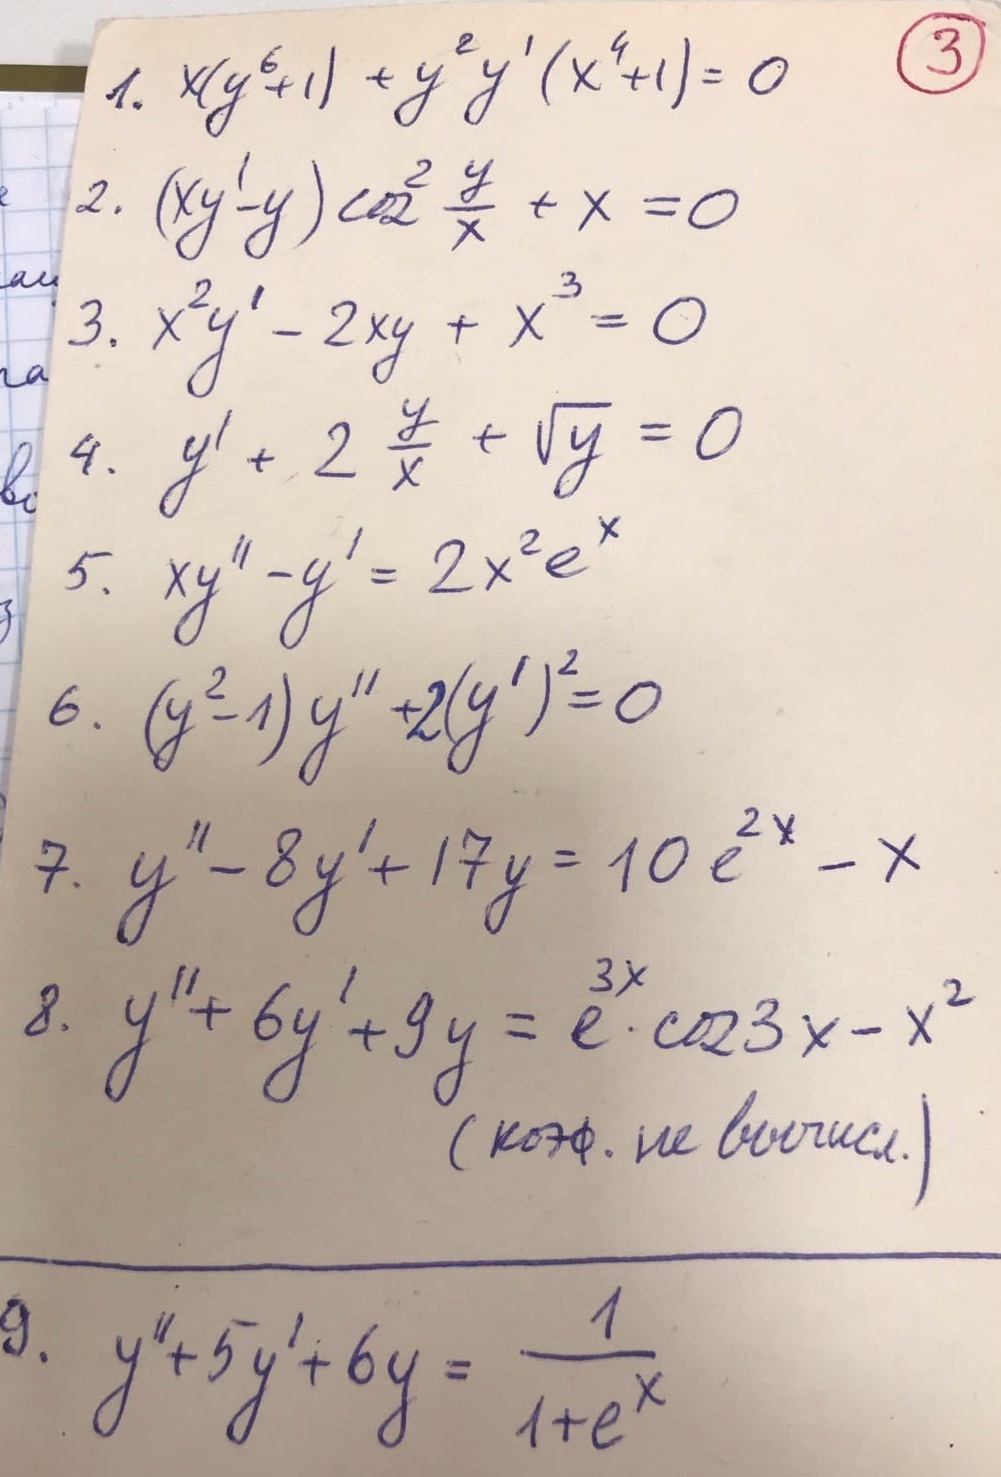 3
1. x(y⁶+1) + y²y'(x⁴+1) = 0
2. (xy'-y) cos² y/x + x = 0
3. x²y' - 2xy + x³ = 0
4. y' + 2 y/x + √y = 0
5. xy'' - y' = 2x²eˣ
6. (y²-1)y'' + 2(y')² = 0
7. y'' - 8y' + 17y = 10e²ˣ - x
8. y'' + 6y' + 9y = e³ˣ · cos3x - x²
(коэф. не вычисл.)
9. y'' + 5y' + 6y = 1/(1+eˣ)